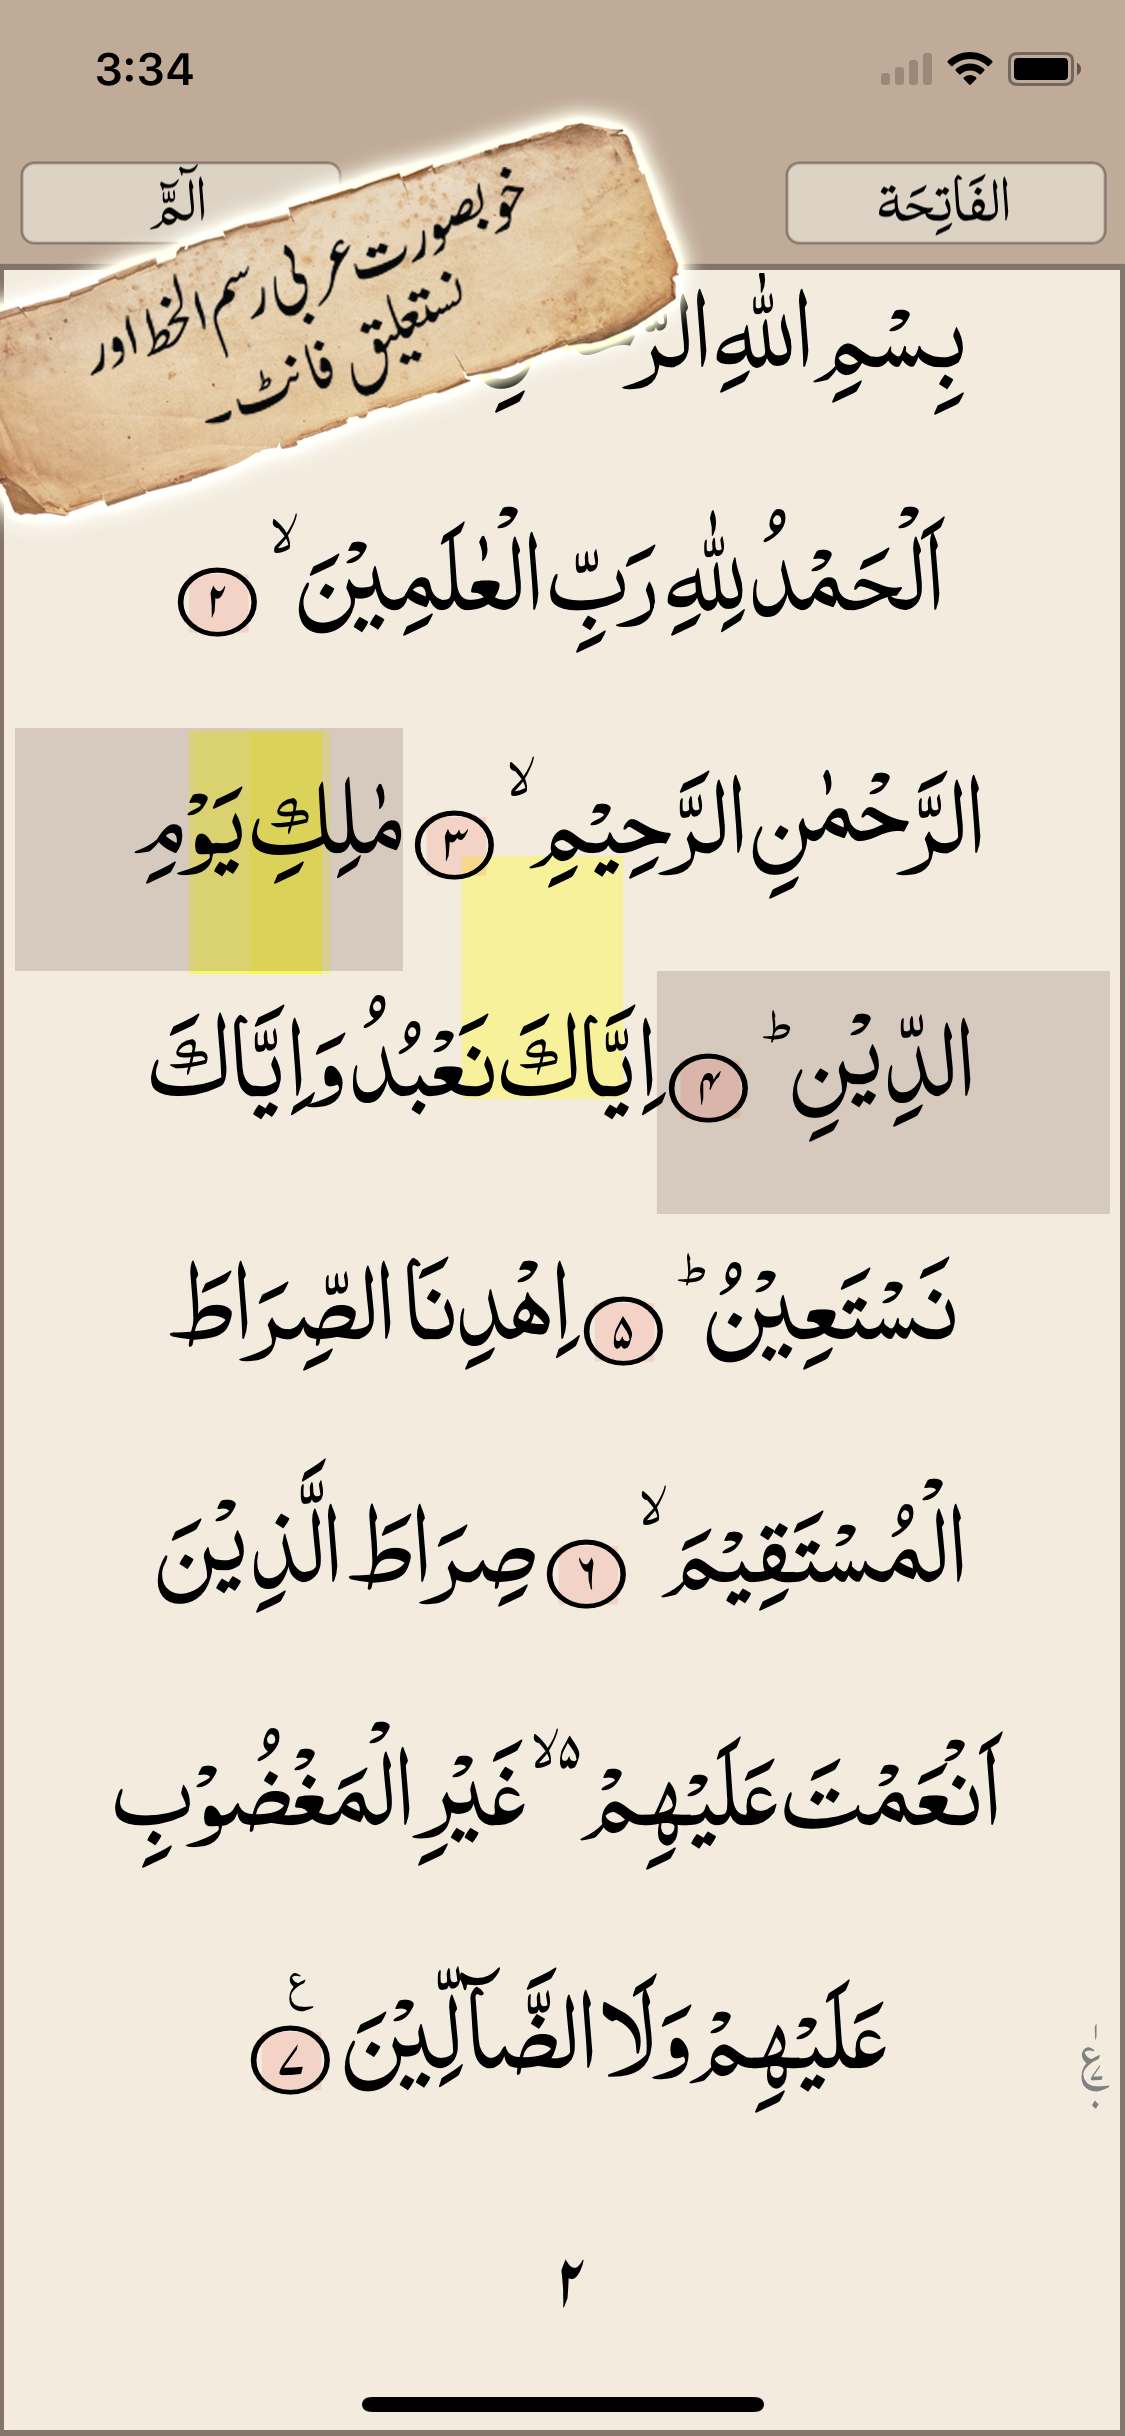 3:34
الفَاتِحَة
الٓمّٓ
خوبصورت عربی رسم الخط اور
نستعلیق فانٹ۔
بِسْمِ اللّٰهِ
اَلْحَمْدُ لِلّٰهِ رَبِّ الْعٰلَمِيْنَ ۙ ۲
الرَّحْمٰنِ الرَّحِيْمِ ۙ ۳ مٰلِكِ يَوْمِ
الدِّيْنِ ؕ ۴ اِيَّاكَ نَعْبُدُ وَاِيَّاكَ
نَسْتَعِيْنُ ؕ ۵ اِهْدِنَا الصِّرَاطَ
الْمُسْتَقِيْمَ ۙ ۶ صِرَاطَ الَّذِيْنَ
اَنْعَمْتَ عَلَيْهِمْ ۵ ۙ غَيْرِ الْمَغْضُوْبِ
عَلَيْهِمْ وَلَا الضَّآلِّيْنَ ۷ ع
۲